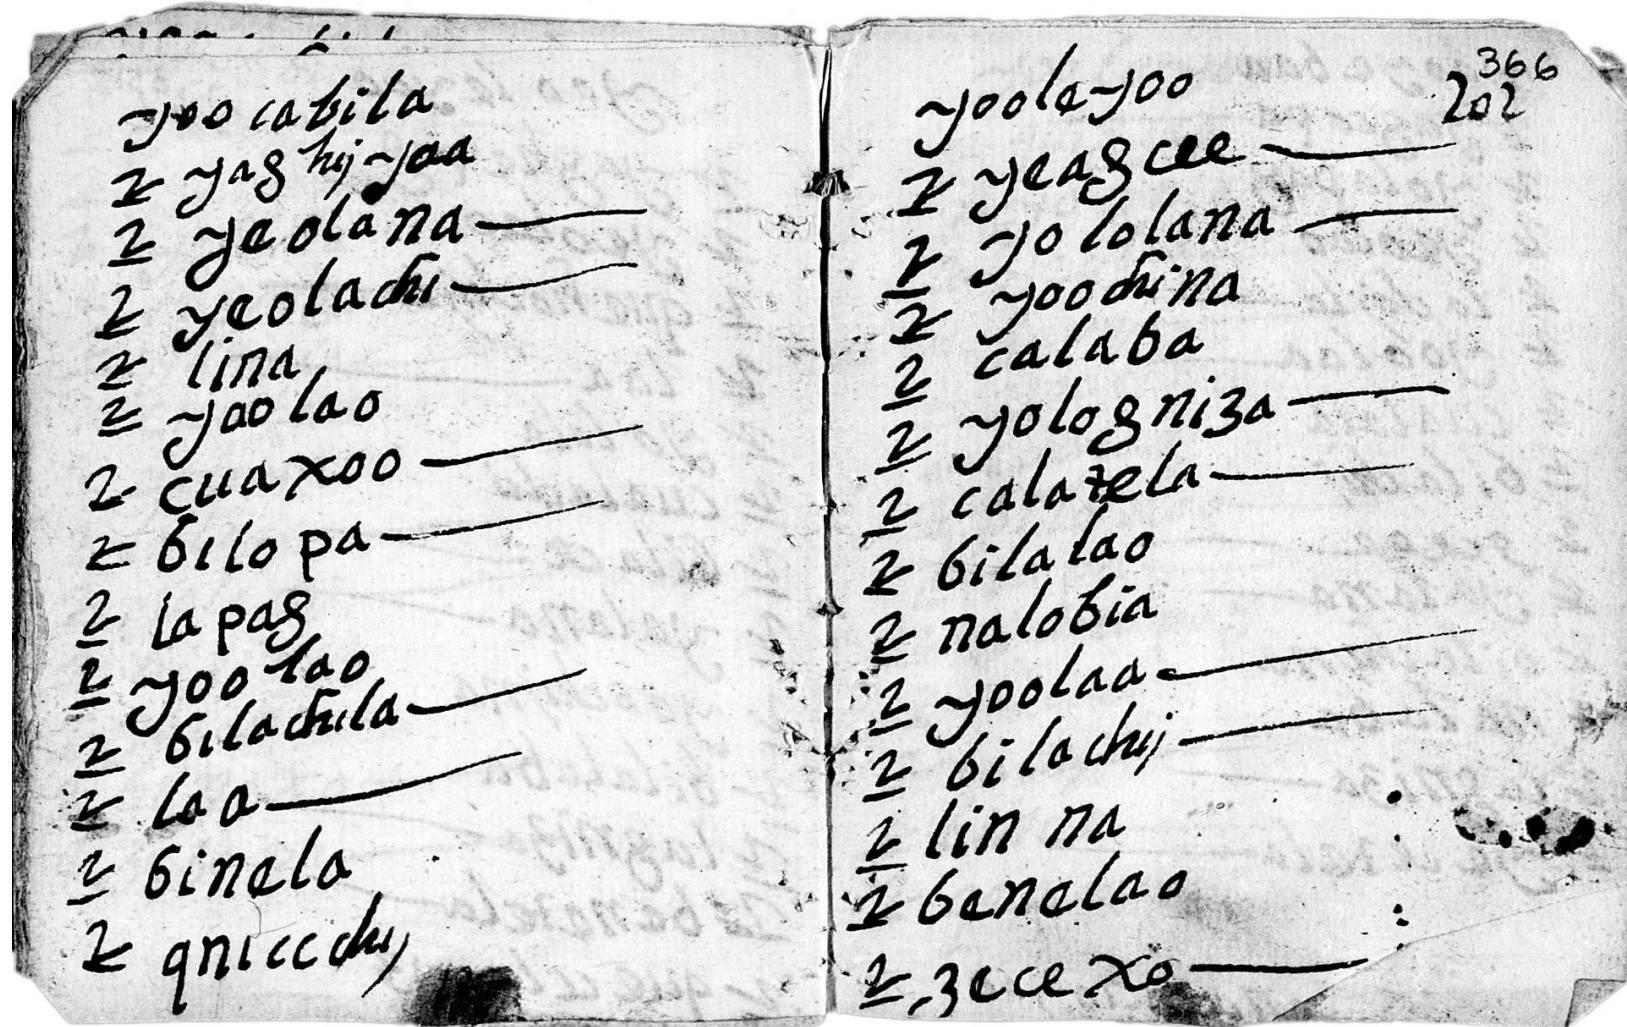 yoo cabila
2 yag hij yaa
2 yeolana
2 yeolachi
2 lina
2 yoolao
2 cuaxoo
2 bilopa
2 lapag
2 yoo lao
2 bilachila
2 laa
2 binela
2 qniecchij
366
202
yooleyoo
2 yeagcee
2 yololana
2 yoochina
2 calaba
2 yologniza
2 calazela
2 bilalao
2 nalobia
2 yoolaa
2 bilachij
2 lin na
2 benelao
2 zecexo